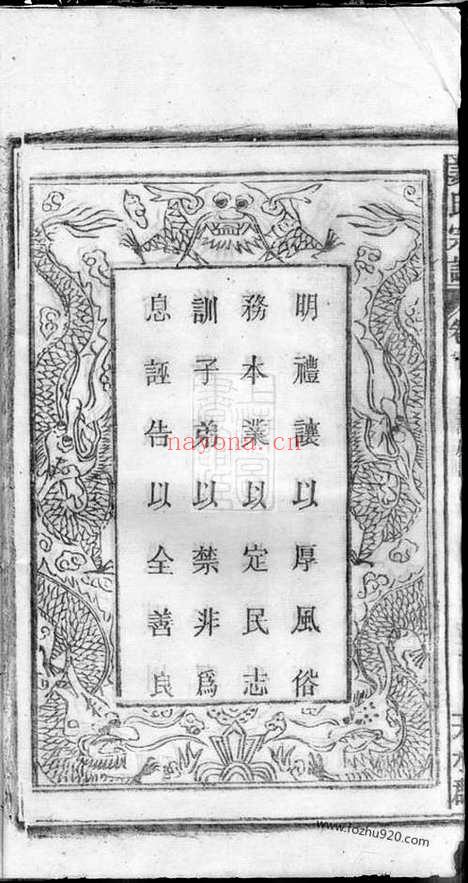 明禮讓以厚風俗
務本業以定民志
訓子弟以禁非爲
息誣告以全善良
nayona.cn
www.fozhu920.com